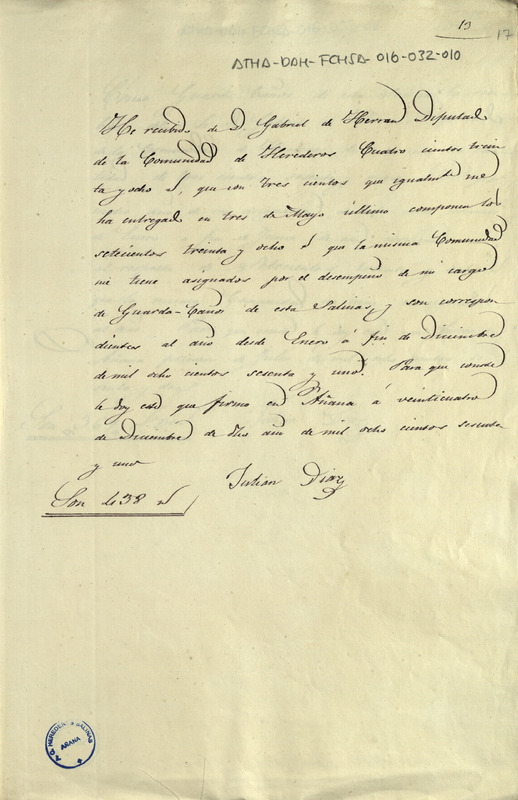 13
17
ATHA-DAH-FCHSA-016-032-010
He recibido de D. Gabriel de Herran Diputado
de la Comunidad de Herederos Cuatro cientos trein
ta y ocho rs, que con tres cientos que igualmte me
ha entregado en tres de Mayo último componen los
setecientos treinta y ocho rs que la misma Comunidad
me tiene asignados por el desempeño de mi cargo
de Guarda-Caños de esta Salinas, y son correspon
dientes al año desde Enero á fin de Diciembre
de mil ocho cientos sesenta y uno. Para que conste
le doy este que firmo en Añana á veinticuatro
de Diciembre de dho año de mil ocho cientos sesenta
y uno
Julian Diaz
Son 438 rs
HEREDEROS SALINAS
AÑANA